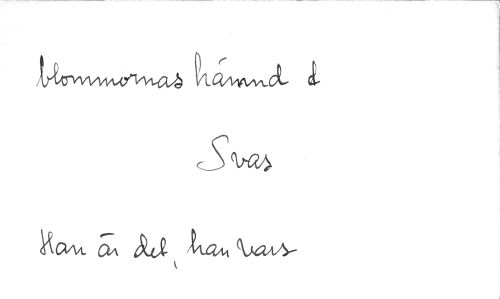 blommornas hämnd d
Svas
Han är det, han vars